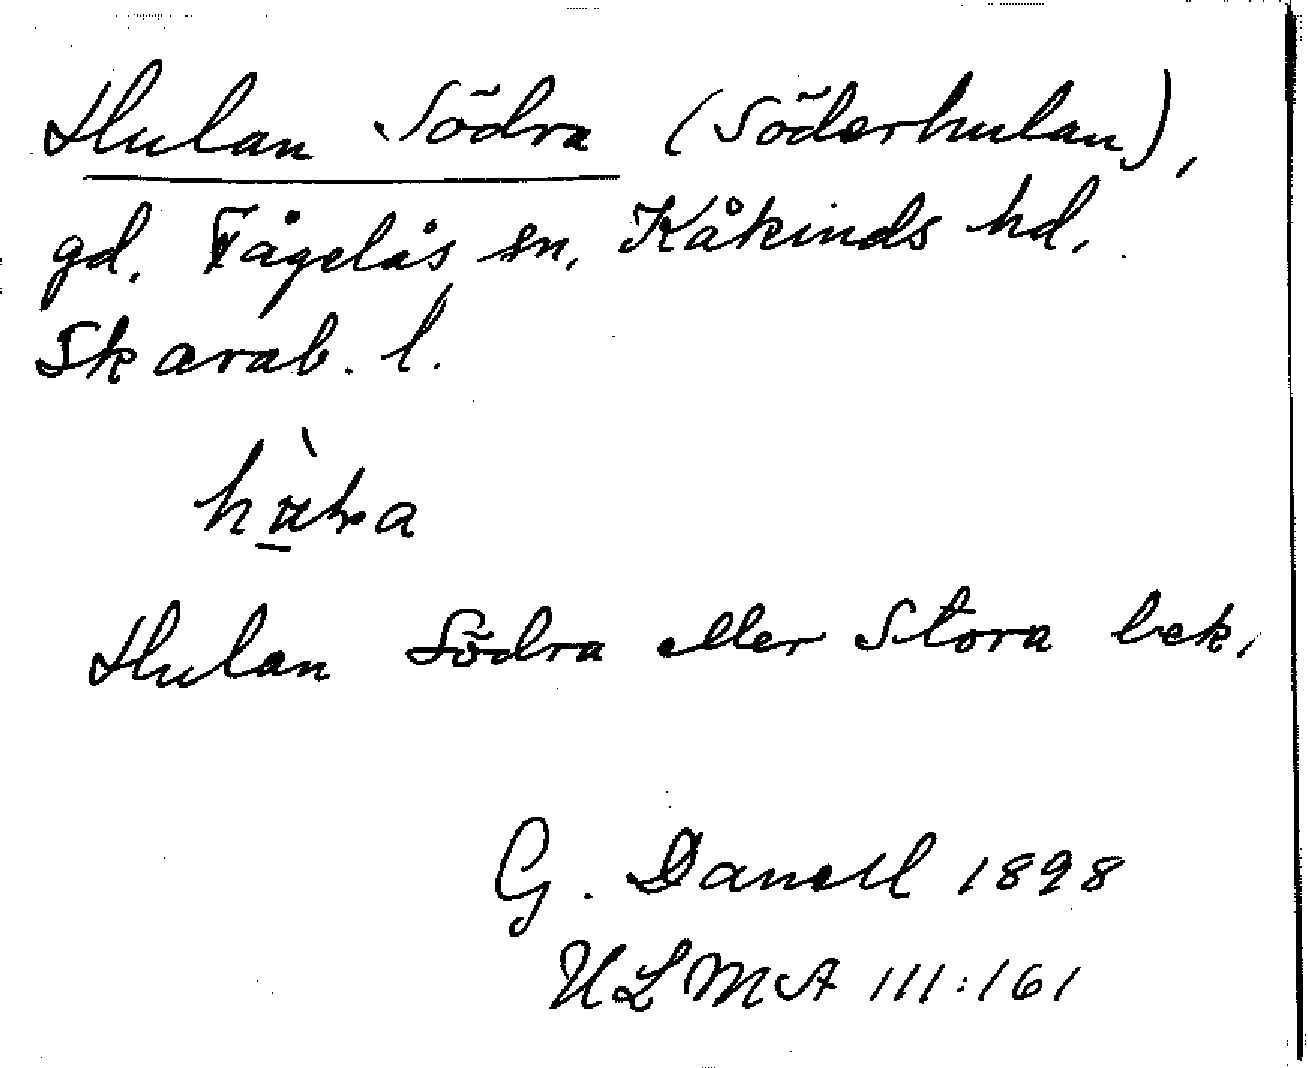 Hulan Södra (Söderhulan),
gd. Fågelås sn, Kåkinds hd,
Skarab. l.
Hulan Södra eller Stora bek.
G. Danell 1898
ULMA 111:161